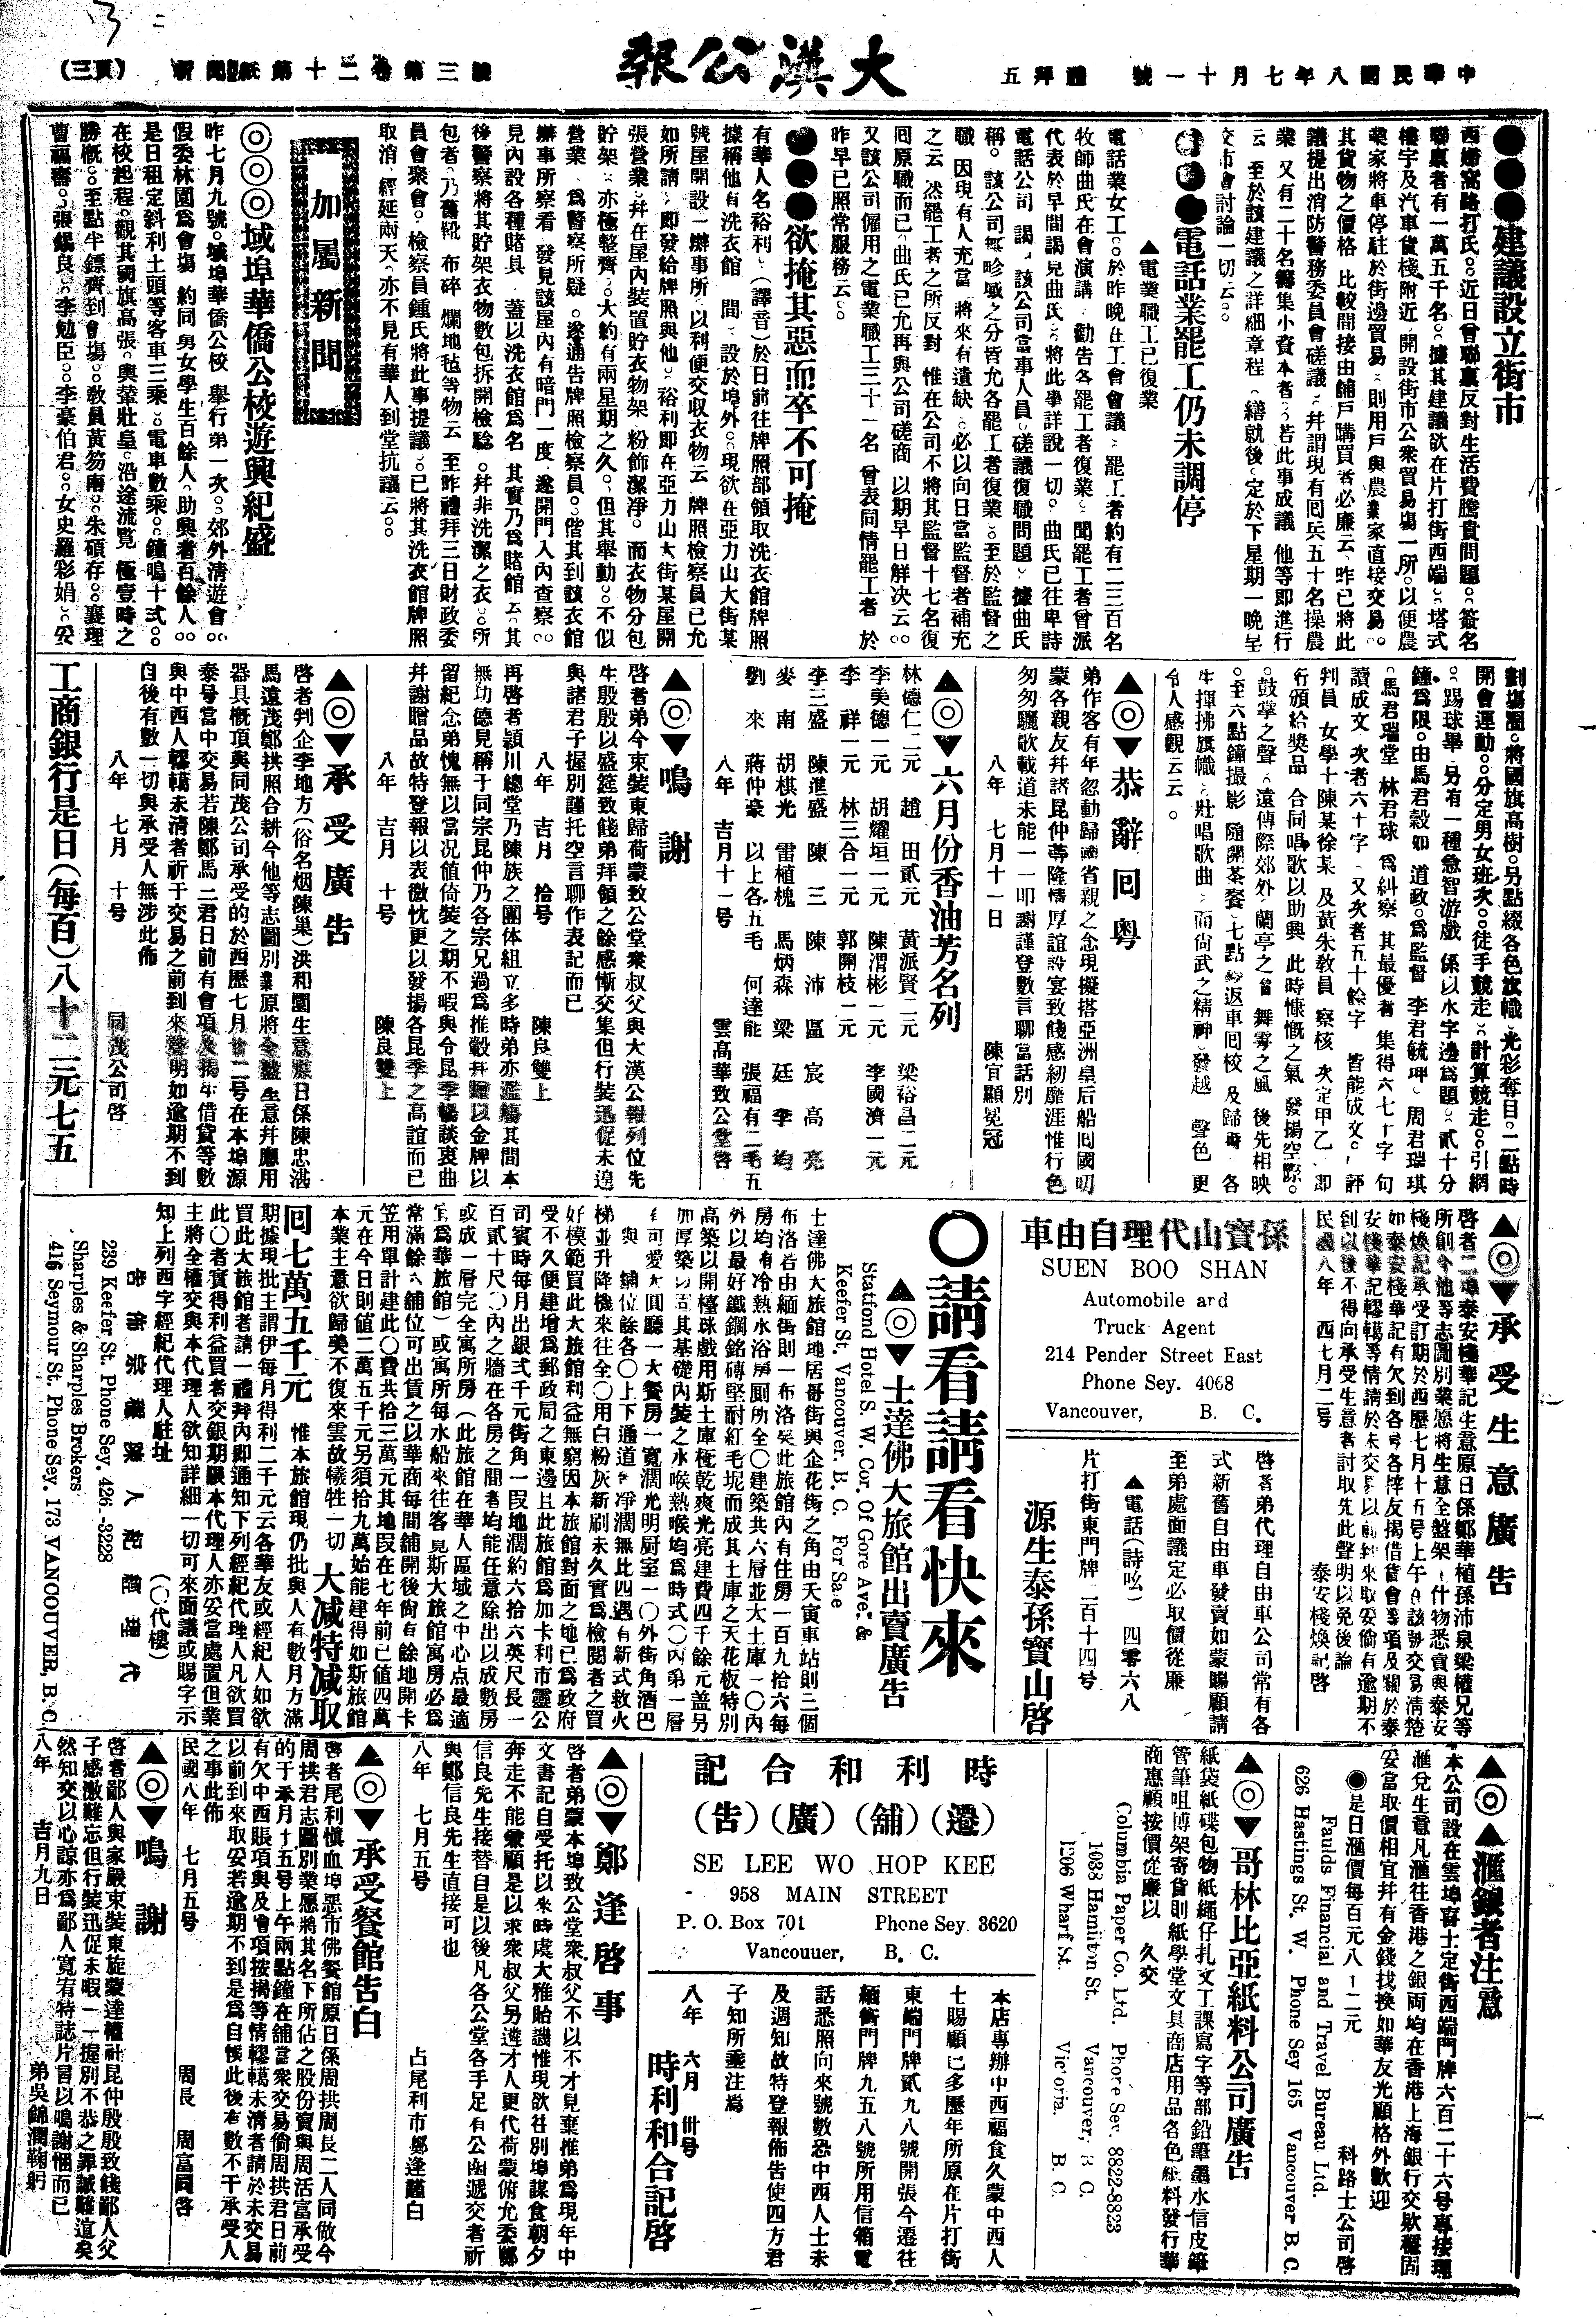 中華民國八年七月十一號 禮拜五
大漢公報
新聞紙第十二卷第三號
(頁三)
●●●建議設立街市
西婦窩路打氏。近日曾聯稟反對生活費騰貴問題。簽名
聯稟者有一萬五千名。據其建議欲在片打街西端。塔式
樓宇及汽車貨棧附近。開設街市公衆貿易塲一所。以便農
業家將車停駐於街邊貿易。則用戶與農業家直接交易。
其貨物之價格 比較間接由舖戶購買者必廉云。昨已將此
議提出消防警務委員會磋議。幷謂現有囘兵五十名操農
業 又有二十名籌集小資本者。若此事成議 他等即進行
云 至於該建議之詳細章程 繕就後。定於下星期一晚呈
交市會討論一切云。
●●●電話業罷工仍未調停
▲電業職工已復業
電話業女工。於昨晚在工會會議。罷工者約有二三百名
牧師曲氏在會演講 勸告各罷工者復業。聞罷工者曾派
代表於早間謁見曲氏。將此事詳說一切。曲氏已往卑詩
電話公司 謁 該公司當事人員。磋議復職問題。據曲氏
稱。該公司無畛域之分皆允各罷工者復業。至於監督之
職 因現有人充當 將來有遺缺。必以向日當監督者補充
之云 然罷工者之所反對 惟在公司不將其監督十七名復
囘原職而已。曲氏已允再與公司磋商 以期早日解決云。
又該公司僱用之電業職工三十一名 曾表同情罷工者 於
昨早已照常服務云。
●●●欲掩其惡而卒不可掩
有華人名裕利。(譯音)於日前往牌照部領取洗衣館牌照
據稱他有洗衣館一間 設於埠外。現欲在亞力山大街某
號屋開設一辦事所 以利便交收衣物云 牌照檢察員已允
如所請。即發給牌照與他。裕利即在亞力山大街某屋開
張營業。幷在屋內裝置貯衣物架 粉飾潔淨。而衣物分包
貯架。亦極整齊。大約有兩星期之久。但其舉動。不似
營業 爲警察所疑。遂通告牌照檢察員。偕其到該衣館
辦事所察看 發見該屋內有暗門一度 遂開門入內查察。
見內設各種賭具 蓋以洗衣館爲名 其實乃爲賭館云 其
後警察將其貯架衣物數包拆開檢騐。幷非洗潔之衣。所
包者 乃舊靴 布碎 爛地毡等物云 至昨禮拜三日財政委
員會衆會。檢察員鍾氏將此事提議。已將其洗衣館牌照
取消 經延兩天 亦不見有華人到堂抗議云。
加屬新聞
◎◎◎域埠華僑公校遊興紀盛
昨七月九號。域埠華僑公校 舉行弟一次。郊外清遊會。
假委林園爲會塲 約同男女學生百餘人。助興者百餘人。
是日租定斜利土頭等客車三乘。電車數乘。鐘鳴十弍。
在校起程。觀其國旗高張。輿輦壯皇。沿途流覽 極壹時之
勝槪。至點半鐘齊到會塲。敎員黃笏南。朱碩存。襄理
曹福審。張錫良。李勉臣。李豪伯君。女史羅彩娟。妥
劃塲圈。將國旗高樹。另點綴各色旗幟。光彩奪目。二點時
開會運動。分定男女班次。徒手競走。計算競走。引綱
。踢球畢 另有一種急智游戲 係以水字邊爲題。貳十分
鐘爲限。由馬君穀如 道政。爲監督 李君毓坤。周君瑞琪
。馬君瑞堂 林君球 爲糾察 其最優者 集得六七十字 句
讀成文 次者六十字 又次者五十餘字 皆能成文。評
判員 女學士陳某徐某 及黃朱敎員 察核 次定甲乙 即
行頒給獎品 合同唱歌以助興 此時慷慨之氣 發揚空際。
。鼓掌之聲。遠傳際郊外。蘭亭之會 舞雩之風 後先相映
。至六點鐘撮影 隨開茶餐。七點 返車囘校 及歸時 各
生揮拂旗幟。壯唱歌曲。而尙武之精神。發越 聲色 更
令人感觀云云。
▲◎▼恭辭囘粤
弟作客有年忽動歸國省親之念現擬搭亞洲皇后船囘國叨
蒙各親友幷諸昆仲等隆情厚誼設宴致餞感紉靡涯惟行色
匆匆驪歌載道未能一一叩謝謹登數言聊當話別
八年 七月十一日 陳宜顯冕冠
▲◎▼六月份香油芳名列
林德仁二元 趙 田貳元 黃派賢二元 梁裕昌二元
李美德一元 胡耀垣一元 陳渭彬一元 李國濟一元
李 祥一元 林三合一元 郭開枝一元
李三盛 陳進盛 陳 三 陳 沛 區 宸 高 亮
麥 南 胡棋光 雷植槐 馬炳森 梁 廷 李 均
劉 來 蔣仲豪 以上各五毛 何達能 張福有二毛五
八年 吉月十一号 雲高華致公堂啓
▲◎▼鳴謝
啓者弟今束裝東歸荷蒙致公堂衆叔父與大漢公報列位先
生殷殷以盛筵致餞弟拜領之餘感慚交集但行裝迅促未遑
與諸君子握別謹托空言聊作表記而已
八年 吉月 拾号 陳良雙上
再啓者頴川總堂乃陳族之團体組立多時弟亦濫觴其間本
無功德見稱于同宗昆仲乃各宗兄過爲推轂幷贈以金牌以
留紀念弟愧無以當况値倚裝之期不暇與令昆季暢談衷曲
幷謝贈品故特登報以表微忱更以發揚各昆季之高誼而已
八年 吉月 十号 陳良雙上
▲◎▼承受廣告
啓者判企李地方(俗名烟陳巢)洪和園生意原日係陳忠湛
馬遠茂鄭拱照合耕今他等志圖別業原將全盤生意幷應用
器具慨頂與同茂公司承受的於西歷七月廿二号在本埠源
泰号當中交易若陳鄭馬二君日前有會項及揭年借貸等數
與中西人轇轕未清者祈于交易之前到來聲明如逾期不到
自後有數一切與承受人無涉此佈
八年 七月 十号 同茂公司啓
工商銀行是日(每百)八十二元七五
▲◎▼承受生意廣告
啓者二埠泰安棧華記生意原日係鄭華植孫沛泉梁權兄等
所創今他等志圖別業愿將生意全盤架什物悉賣與泰安
棧煥記承受訂期於西歷七月十五号上午在該號交易清楚
如泰安棧華記有欠到各号各梓友揭借貨會等項及關於泰
安棧華記轇轕等情請於未交易以前到來取妥倘有逾期不
到以後不得向承受生意者討取先此聲明以免後論
民國八年 四七月二号 泰安棧煥記啓
孫寶山代理自由車
SUEN BOO SHAN
Automobile and
Truck Agent
214 Pender Street East
Phone Sey. 4068
Vancouver, B. C.
啓者弟代理自由車公司常有各
式新舊自由車發賣如蒙賜顧請
至弟處面議定必取價從廉
▲電話(詩吆)四零六八
片打街東門牌二百十四号
源生泰孫寶山啓
〇請看請看快來
▲◎▼士達佛大旅館出賣廣告
Statfond Hotel S. W. Cor. Of Gore Ave. &
Keefer St. Vancouver. B. C. For Sale
士達佛大旅館地居哥街與企花街之角由天寅車站則三個
布洛若由緬街則一布洛矣此旅館內有住房一百九拾六每
房均有冷熱水浴房厠所全〇建築共六層並大土庫一〇內
外以最好鐵鋼銘磚堅耐紅毛坭而成其土庫之天花板特別
高築以開檯球戲用斯土庫極乾爽光亮建費四千餘元蓋另
加厚築以固其基礎內裝之水喉熱喉均爲時式〇內弟一層
有可愛大圓廳一大餐房一寬濶光明厨室一〇外街角酒巴
一與 舖位餘各〇上下通道 凈濶無比四邊有新式救火
梯並升降機來往全〇用白粉灰新刷未久實爲檢閱者之買
好模範買此大旅館利益無窮因本旅館對面之地已爲政府
受不久便建增爲郵政局之東邊且此旅館爲加卡利市靈公
司賓時每月出銀弍千元街角一叚地濶約六拾六英尺長一
百貳十尺〇內之牆在各房之間者均能任意除出以成數房
或成一層完全寓所房(此旅館在華人區域之中心点最適
宜爲華旅館)或寓所每水船來往客見斯大旅館寓房必爲
常滿餘六舖位可出賃之以華商每間舖開後尙有餘地開卡
笠用單計建此〇費共拾三萬元其地叚在七年前已値四萬
元在今日則値二萬五千元另須拾九萬始能建得如斯旅館
本業主意欲歸美不復來雲故犧牲一切 大減特減取
囘七萬五千元 惟本旅館現仍批與人有數月方滿
期據現批主謂伊每月得利二千元云各華友或經紀人如欲
買此大旅館者請一禮拜內即通知下列經紀代理人凡欲買
此〇者實得利益買者交銀期限本代理人亦妥當處置但業
主將全權交與本代理人欲知詳細一切可來面議或賜字示
知上列西字經紀代理人駐址 (〇代樓)
239 Keefer St. Phone Sey. 426-8228
Sharples & Sharples Brokers
416 Seymour St. Phone Sey. 173 VANCOUVER, B. C.
▲◎▲滙銀者注意
本公司設在雲埠喜士定街西端門牌六百二十六号專接理
滙兌生意凡滙往香港之銀両均在香港上海銀行交欵穩固
妥當取價相宜幷有金錢找換如華友光顧格外歡迎
◉是日滙價每百元八十二元 科路士公司啓
Faulds Financial and Travel Bureau Ltd.
626 Hastings St. W. Phone Sey 165 Vancouver B. C.
▲◎▼哥林比亞紙料公司廣告
紙袋紙碟包物紙繩仔扎文工課寫字等部鉛筆墨水信皮筆
管筆咀博架寄貨則紙學堂文具商店用品各色紙料發行華
商惠顧按價從廉以 久交
Columbia Paper Co. Ltd. Phone Sey. 8822-8823
1038 Hamilton St. Vancouver, B. C.
1206 Wharf St. Victoria. B. C.
時利和合記
(遷)(舖)(廣)(告)
SE LEE WO HOP KEE
958 MAIN STREET
P. O. Box 701 Phone Sey. 3620
Vancouuer, B. C.
本店專辦中西福食久蒙中西人
士賜顧已多歷年所原在片打街
東端門牌貳九八號開張今遷往
緬街門牌九五八號所用信箱電
話悉照向來號數恐中西人士未
及週知故特登報佈告使四方君
子知所垂注焉
八年 六月 卅号
時利和合記啓
▲◎▼鄭逢啓事
啓者弟蒙本埠致公堂衆叔父不以不才見棄推弟爲現年中
文書記自受托以來時虞大雅貽譏惟現欲往別埠謀食朝夕
奔走不能兼顧是以求衆叔父另遴才人更代荷蒙俯允委鄭
信良先生接替自是以後凡各公堂各手足有公函遞交者祈
與鄭信良先生直接可也
八年 七月五号 占尾利市鄭逢謹白
▲◎▼承受餐館告白
啓者尾利愼血埠恶市佛餐館原日係周拱周長二人同做今
周拱君志圖別業愿將其名下所佔之股份賣與周活富承受
的于本月十五号上午兩點鐘在舖當衆交易倘周拱君日前
有欠中西賬項與及會項按揭等情轇轕未清者請於未交易
以前到來取妥若逾期不到是爲自悞此後有數不干承受人
之事此佈
民國八年 七月五号 周長 周富同啓
▲◎▼鳴謝
啓者鄙人與家嚴束裝東旋蒙達權社昆仲殷殷致餞鄙人父
子感激難忘但行裝迅促未暇一一握別不恭之罪誠難逭矣
然知交以心諒亦爲鄙人寬宥特誌片言以鳴謝悃而已
八年 吉月九日 弟吳錦潤鞠躬